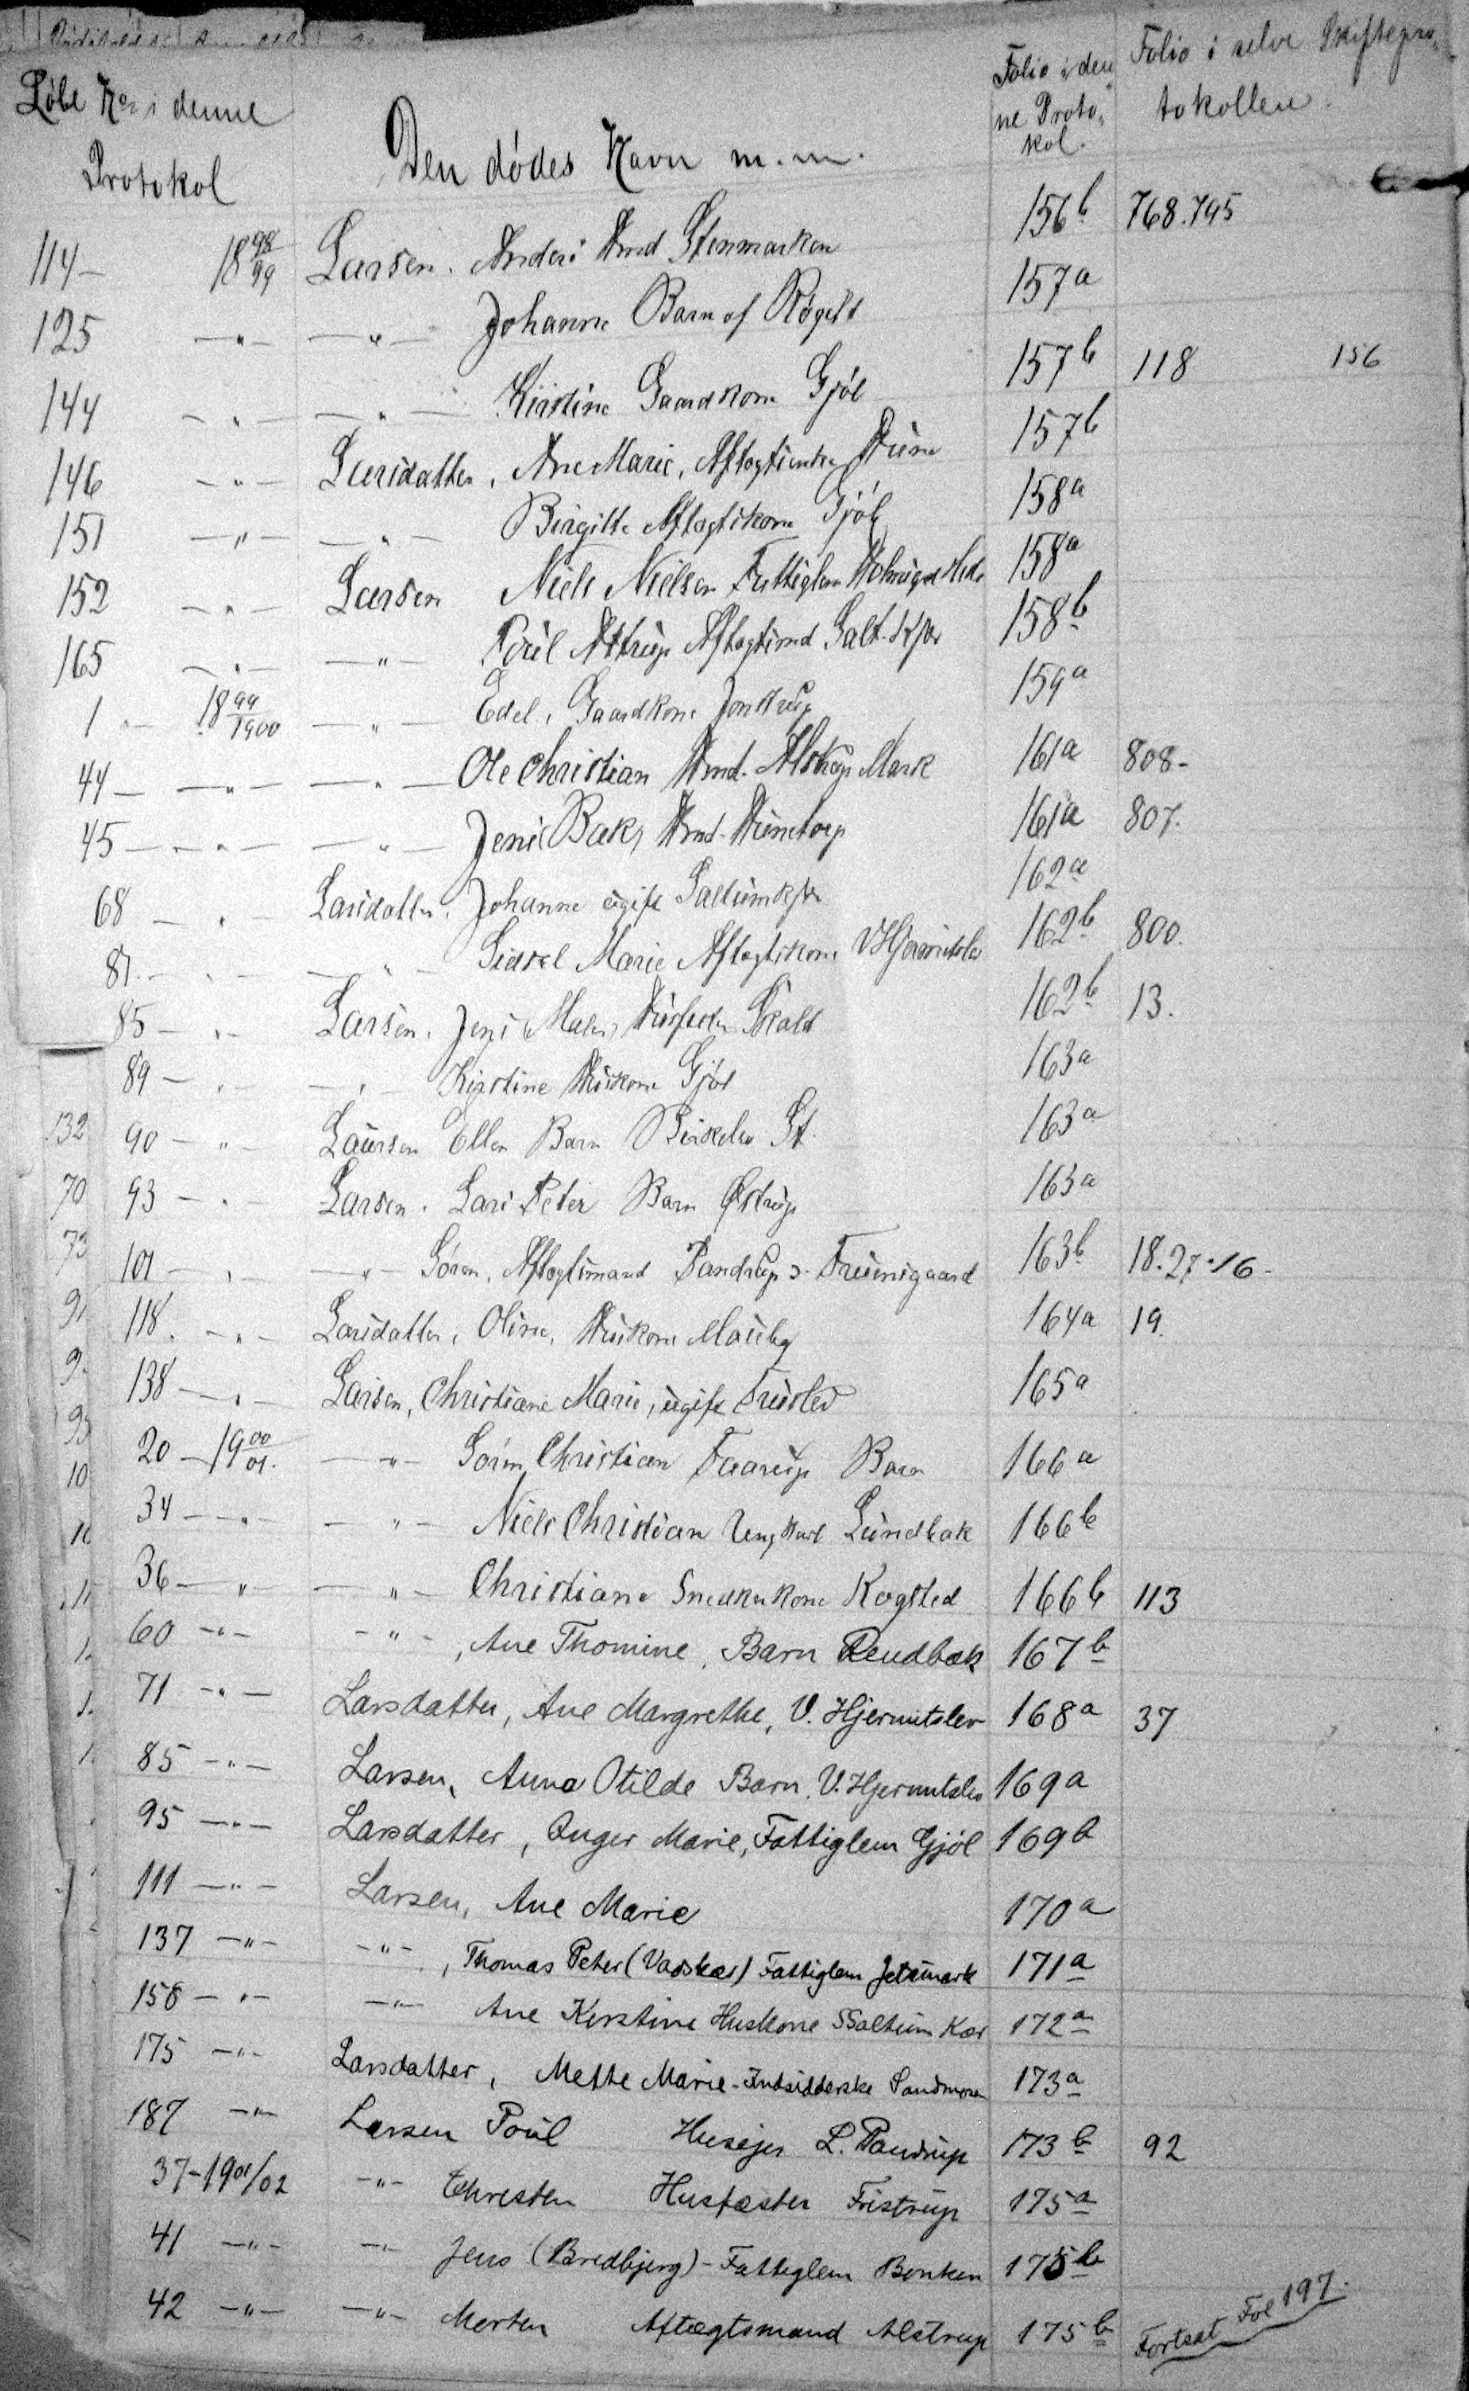 Løbe No i denne Protokol
Den dødes Navn m.m.
Folio i den ne Proto kol.
Folio i selve Skiftepro tokollen.
114 – 18 98/99 Larsen. Anders Hmd Stenmarken 156 b 768.795
125 –"– –"– Johanne Barn af Røgild 157 a
144 –"– –"– Kirstine Gaardkone Gjøl 157 b 118 156
146 –"– Larsdatter, Ane Marie, Aftægtsenke Hune 157 b
151 –"– –"– Birgitte Aftægtskone Gjøl 158 a
152 –"– Larsen Niels Nielsen Fattiglem 158 a
165 –"– –"– Poul Attrup Aftægtsmd Salt. Kjær 158 b
1 – 18 99/1900 –"– Edel, Gaardkone Jonstrup 159 a
44 – –"– –"– Ole Christian Hmd. Alstrup Mark 161 a 808 -
45 – –"– –"– Jens (Bak) Hmd. Hunetorp 161 a 807.
68 – " – Larsdatter, Johanne ugift Saltumkjær 162 a
87 – " – –"– Sidsel Marie Aftægtskone V Hjermitslev 162 b 800.
85 – " – Larsen. Jens (Maler) Husfæster Skald 162 b 13.
89 – " – –"– Kirstine Huskone Gjøl 163 a
90 – " – Laursen Ellen Barn Birkelse St. 163 a
93 – " – Larsen. Lars Peter Barn Østrup 163 a
101 – " – –"– Søren, Aftægtsmand Pandrup 163 b 18.27.16 -
118. –"– Larsdatter, Oline, Huskone Mouby 164 a 19.
138 –"– Larsen, Christiane Marie, ugift Trusled 165 a
20 – 19 00/01. –"– Søren Christian Faarup Barn 166 a
34 –"– –"– Niels Christian Ungkarl Lundbak 166 b
36 –"– –"– Christiane Snedkerkone Kogsted 166 b 113
60 –"– –"–, Ane Thomine, Barn Rendbæk 167 b
71 –"– Larsdatter, Ane Margrethe, V. Hjermitslev 168 a 37
85 –"– Larsen, Anna Otilde Barn. V. Hjermitslev 169 a
95 –"– Larsdatter, Inger Marie, Fattiglem Gjøl 169 b
111 –"– Larsen, Ane Marie 170 a
137 –"– –"–, Thomas Peter (Vadskær) Fattiglem Jetsmark 171 a
158 –"– –"– Ane Kirstine Huskone Saltum Kær 172 a
175 –"– Larsdatter, Mette Marie - Indsidderske Sandmosen 173 a
187 –"– Larsen Poul Husejer L. Pandrup 173 b 92
37 – 1901/02 –"– Christen Husfæster Fristrup 175 a
41 –"– –"– Jens (Bredbjerg) - Fattiglem Bonken 175 b
42 –"– –"– Morten Aftægtsmand Alstrup 175 b
Fortsat Fol 197.
132
70
73
91